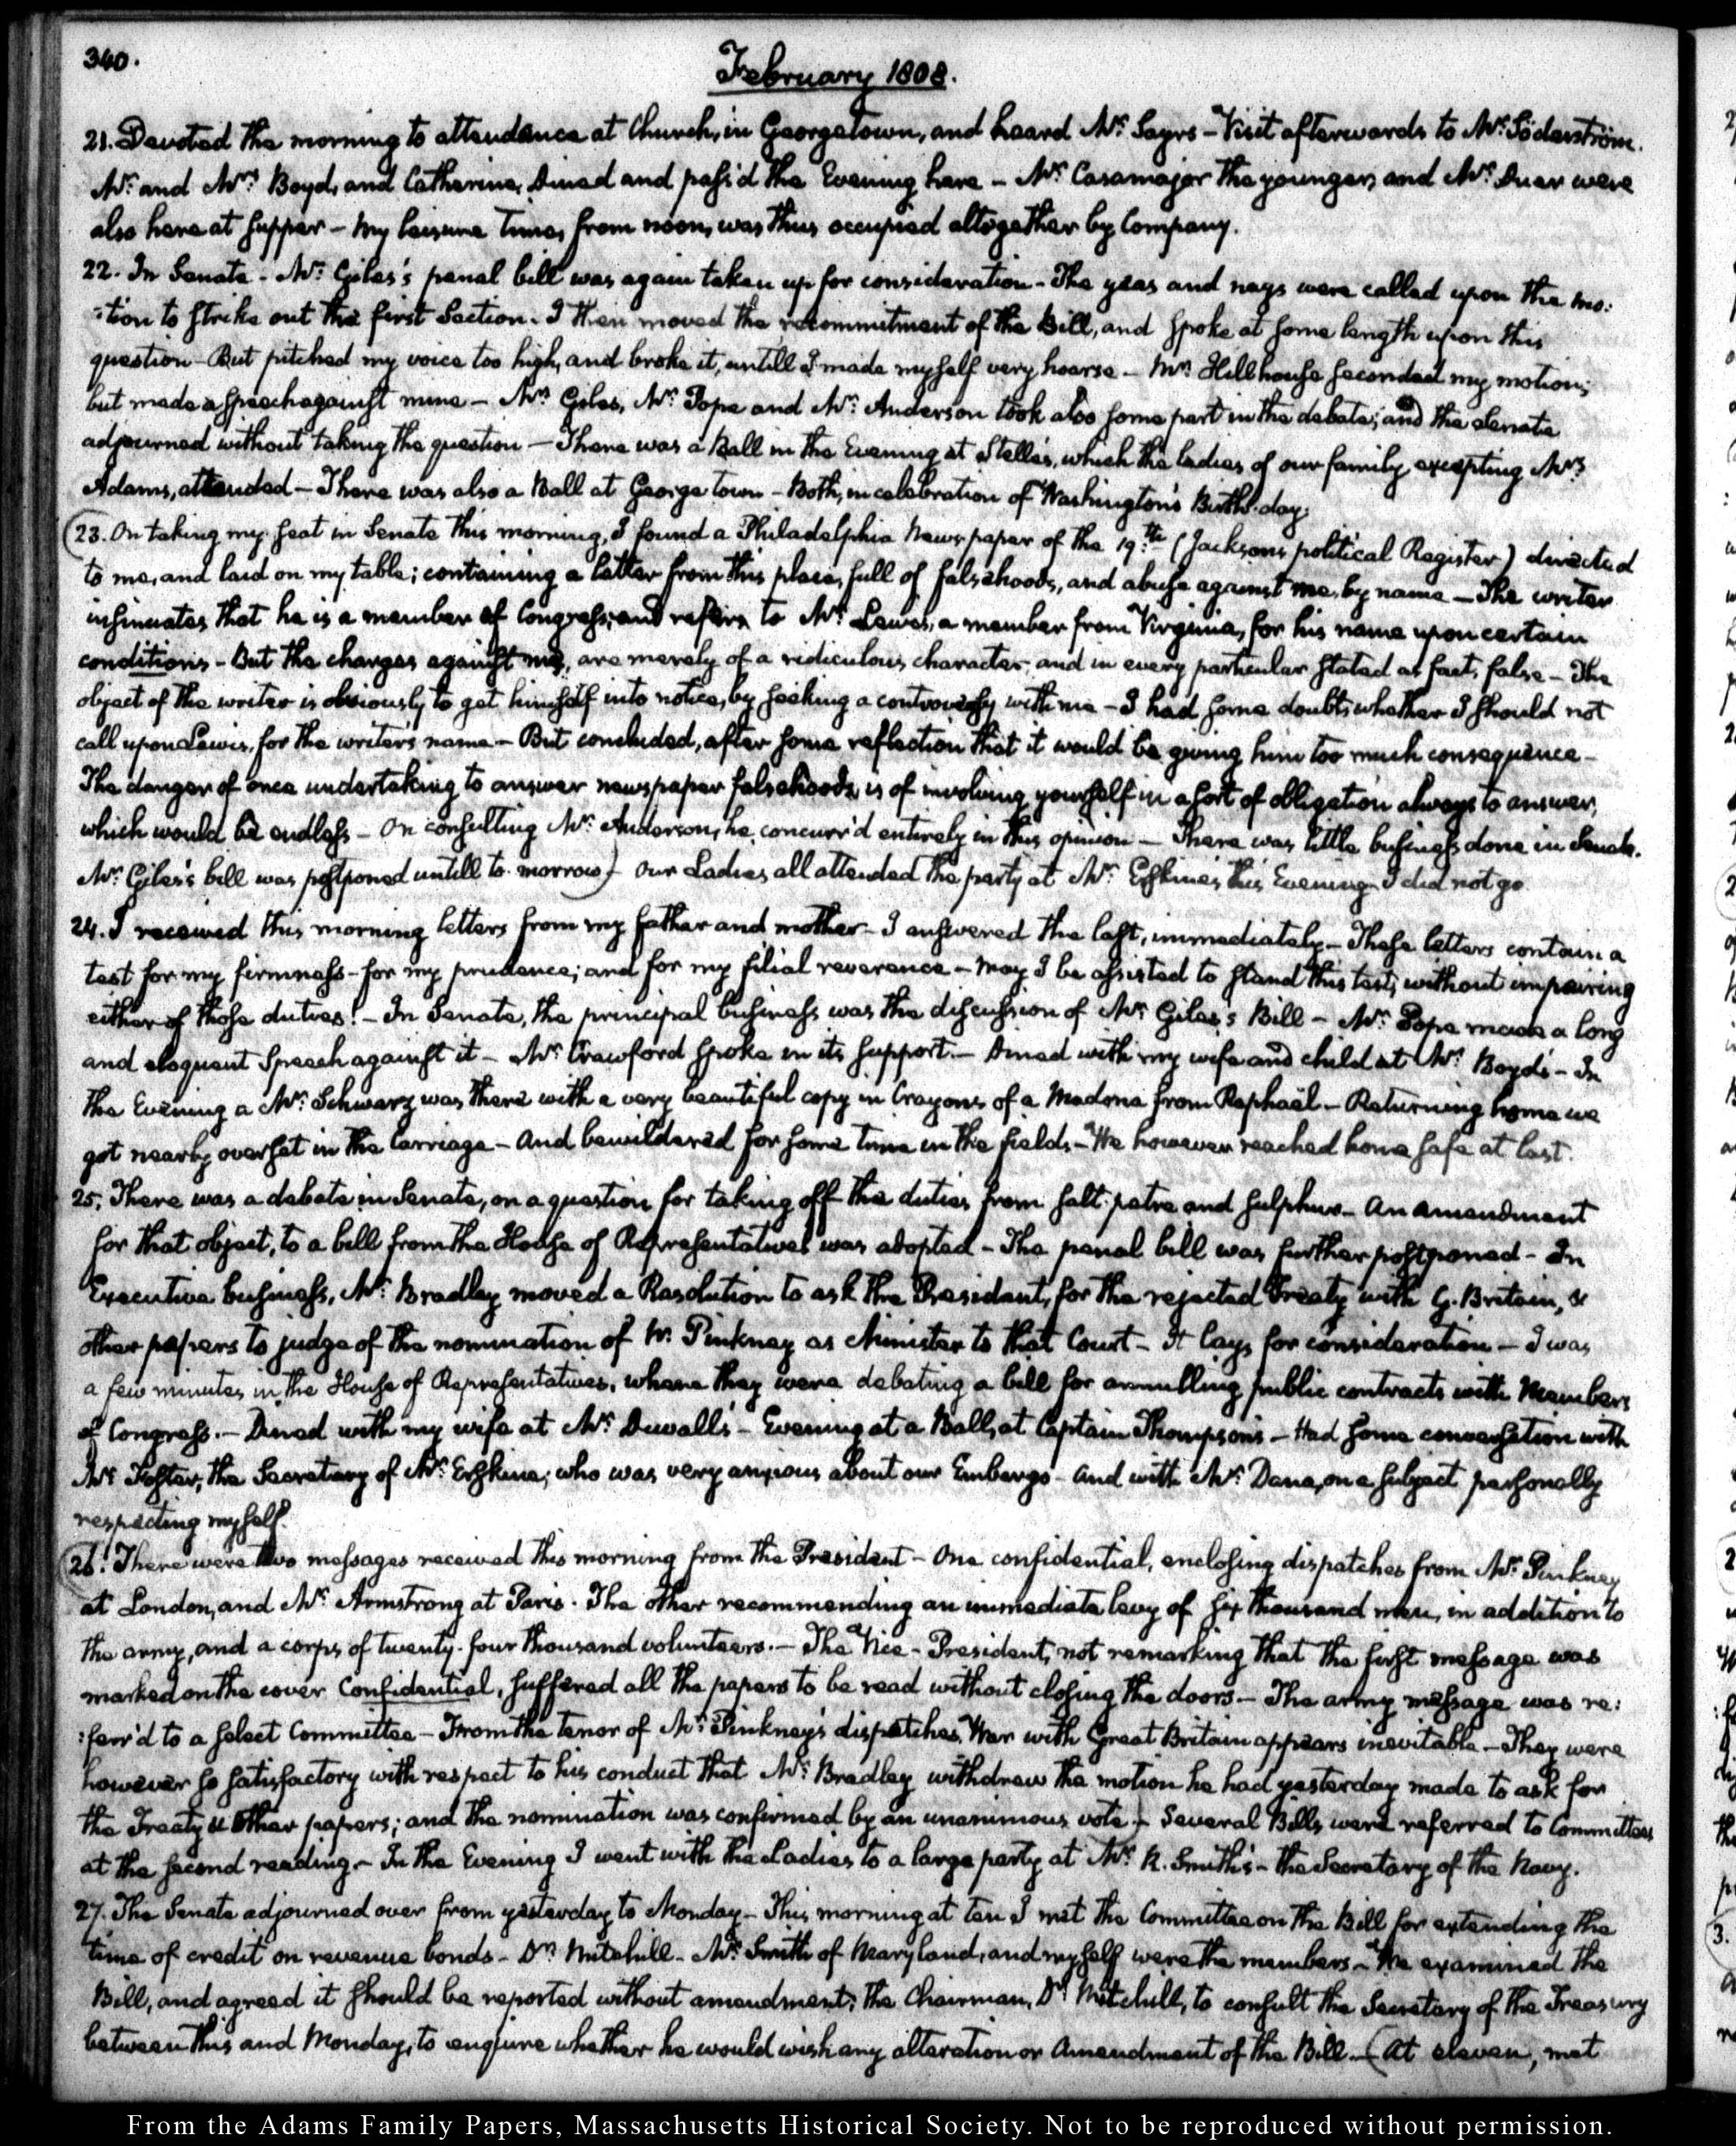 340.
February 1808.
21. Devoted the morning to attendance at Church, in Georgetown, and heard Mr: Sayrs – Visit afterwards to Mr: Söderström.
Mr: and Mrs: Boyd, and Catherine, dined and pass'd the Evening here – Mr: Casamajor the younger, and Mr: Duer were
also here at supper – My leisure time, from noon, was thus occupied altogether by Company.
22. In Senate – Mr: Giles's penal bill was again taken up for consideration – The yeas and nays were called upon the mo:
:tion to strike out the first Section. I then moved the recommitment of the Bill, and spoke at some length upon this
question – But pitched my voice too high, and broke it, untill I made myself very hoarse – Mr: Hillhouse seconded my motion;
but made a speech against mine – Mr: Giles, Mr: Pope and Mr: Anderson took also some part in the debate; and the Senate
adjourned without taking the question – There was a Ball in the Evening at Stelle's, which the ladies of our family, excepting Mrs:
Adams, attended – There was also a Ball at Georgetown – Both, in celebration of Washington's Birth-day.
23. On taking my seat in Senate this morning, I found a Philadelphia Newspaper of the 19th: (Jacksons political Register) directed
to me, and laid on my table; containing a letter from this place, full of falsehoods, and abuse against me, by name – The writer
insinuates that he is a member of Congress; and refers to Mr: Lewis, a member from Virginia, for his name upon certain
conditions – But the charges against me, are merely of a ridiculous character, and in every particular stated as fact, false – The
object of the writer is obviously to get himself into notice, by seeking a controversy with me – I had some doubts whether I should not
call upon Lewis, for the writers name – But concluded, after some reflection that it would be giving him too much consequence –
The danger of once undertaking to answer newspaper falsehoods, is of involving yourself in a sort of obligation always to answer,
which would be endless – On consulting Mr: Anderson, he concurr'd entirely in this opinion – There was little business done in Senate.
Mr: Giles's bill was postponed untill to-morrow) – Our Ladies all attended the party at Mr: Erskine's this Evening – I did not go.
24. I received this morning letters from my father and mother – I answered the last, immediately – These letters contain a
test for my firmness – for my prudence; and for my filial reverence – May I be assisted to stand this test, without impairing
either of those duties! – In Senate, the principal business was the discussion of Mr: Giles's Bill – Mr: Pope made a long
and eloquent Speech against it – Mr: Crawford spoke in its support. – Dined with my wife and child at Mr: Boyd's – In
the Evening a Mr: Schwarz was there with a very beautiful copy in Crayons of a Madona from Raphaël – Returning home we
got nearly overset in the Carriage – And bewildered for some time in the fields – We however reached home safe at last.
25. There was a debate in Senate, on a question for taking off the duties from salt-petre and sulphur – An amendment
for that object, to a bill from the House of Representatives was adopted – The penal bill was further postponed – In
Executive business, Mr: Bradley moved a Resolution to ask the President, for the rejected Treaty with G. Britain, &
other papers to judge of the nomination of W. Pinkney as Minister to that Court – It lays for consideration – I was
a few minutes in the House of Representatives, where they were debating a bill for annulling public contracts with Members
of Congress. – Dined with my wife at Mr: Duvall's – Evening at a Ball, at Captain Thompson's – Had some conversation with
Mr: Foster, the Secretary of Mr: Erskine; who was very anxious about our Embargo – and with Mr: Dana, on a subject personally
respecting myself.
26. There were two messages received this morning from the President – One confidential, enclosing dispatches from Mr: Pinkney
at London, and Mr: Armstrong at Paris. The other recommending an immediate levy of six thousand men, in addition to
the army, and a corps of twenty-four thousand volunteers. – The Vice-President, not remarking that the first message was
marked on the cover Confidential, suffered all the papers to be read without closing the doors – The army message was re:
:ferr'd to a select Committee – From the tenor of Mr: Pinkney's dispatches, War with Great Britain appears inevitable – They were
however so satisfactory with respect to his conduct that Mr: Bradley withdrew the motion he had yesterday made to ask for
the Treaty & other papers; and the nomination was confirmed by an unanimous vote.) – Several Bills were referred to Committees
at the second reading – In the Evening I went with the Ladies to a large party at Mr: R. Smith's – the Secretary of the Navy.
27. The Senate adjourned over from yesterday to Monday – This morning at ten I met the Committee on the Bill for extending the
time of credit on revenue bonds – Dr: Mitchill – Mr: Smith of Maryland, and myself were the members – We examined the
Bill, and agreed it should be reported without amendment; the Chairman, Dr: Mitchill, to consult the Secretary of the Treasury
between this and Monday, to enquire whether he would wish any alteration or Amendment of the Bill. – (At eleven, met
From the Adams Family Papers, Massachusetts Historical Society. Not to be reproduced without permission.